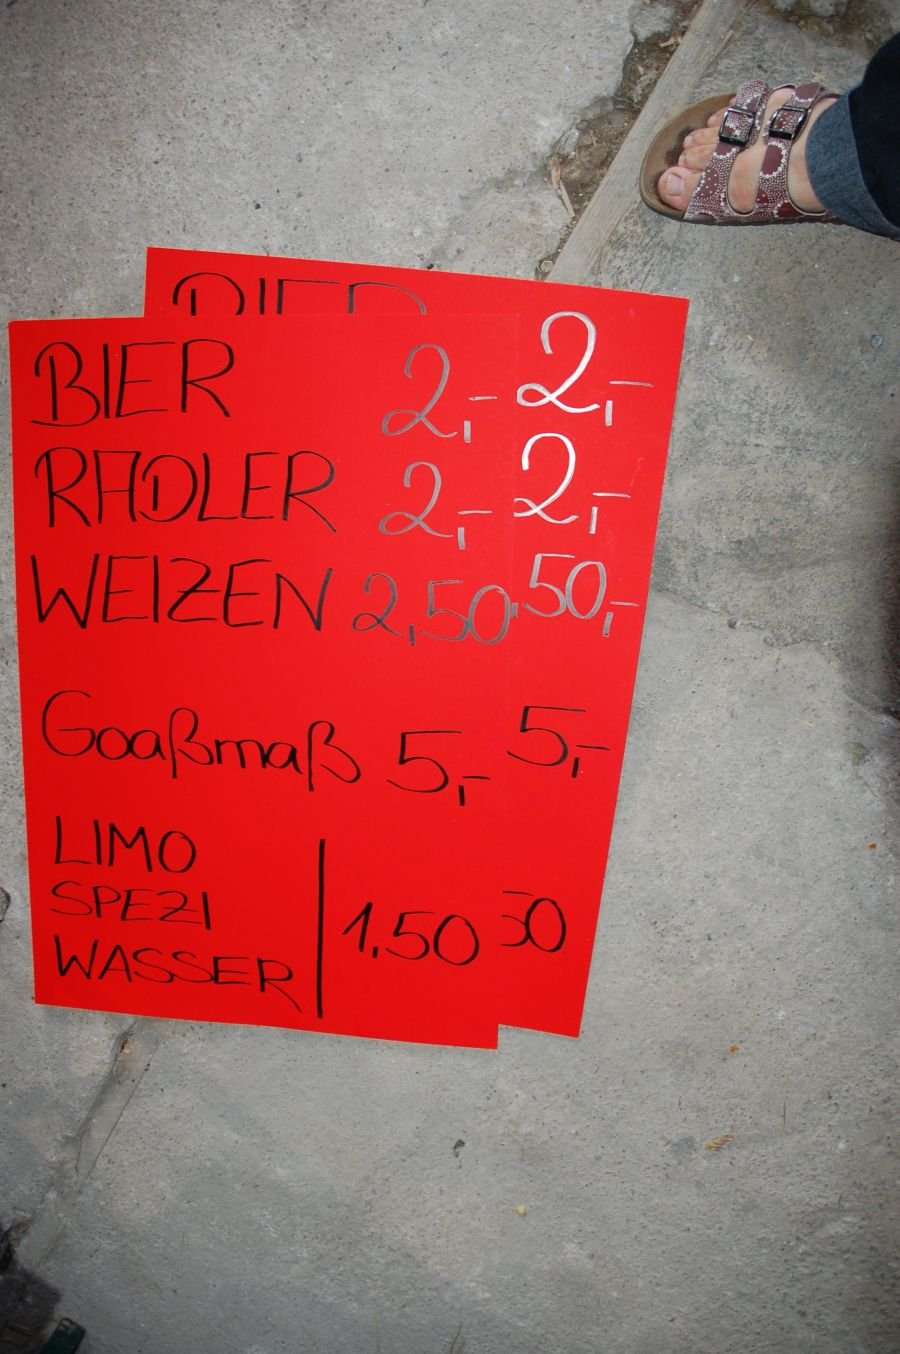 BIER
2,-
BIER 2,-
2,-
RADLER 2,-
WEIZEN 2,50
,50,-
5,-
Goaßmaß 5,-
LIMO
SPEZI 1,50
50
WASSER